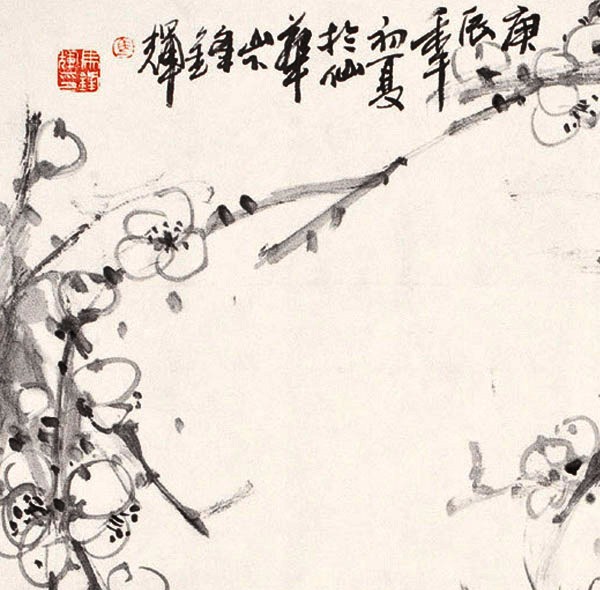 庚
辰
年
初夏
於仙
華
山
鋒
輝